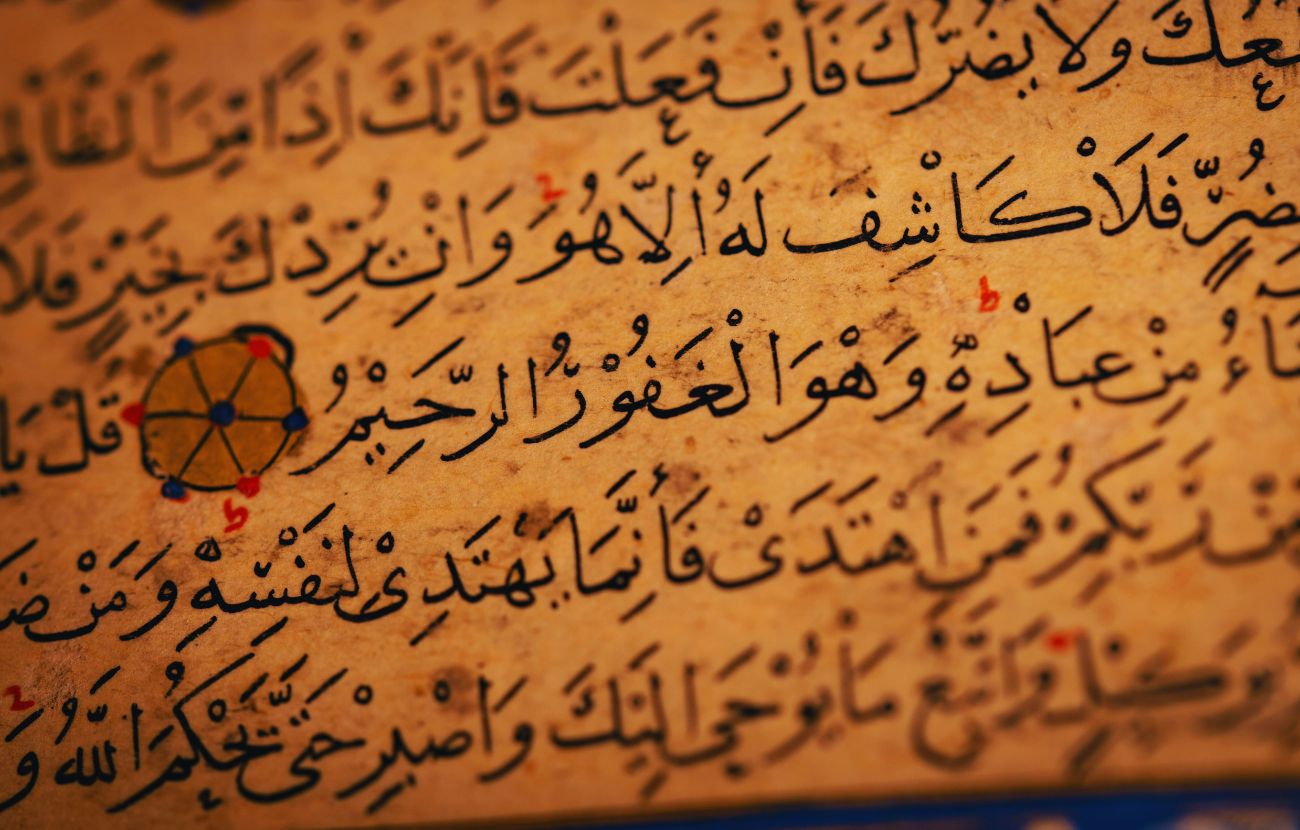 يَنْفَعُكَ وَلَا يَضُرُّكَ فَاِنْ فَعَلْتَ فَاِنَّكَ اِذًا مِنَ الظَّالِمِ
بِضُرٍّ فَلَا كَاشِفَ لَهُ اِلَّا هُوَ وَاِنْ يُرِدْكَ بِخَيْرٍ فَلَا
مِنْ عِبَادِهِ ط وَهُوَ الْغَفُورُ الرَّحِيمُ قُلْ يَا
مِنْ رَبِّكُمْ فَمَنِ اهْتَدَى فَاِنَّمَا يَهْتَدِى لِنَفْسِهِ ط وَمَنْ
بِوَكِيلٍ وَاتَّبِعْ مَا يُوحَى اِلَيْكَ وَاصْبِرْ حَتَّى يَحْكُمَ اللّٰهُ وَ